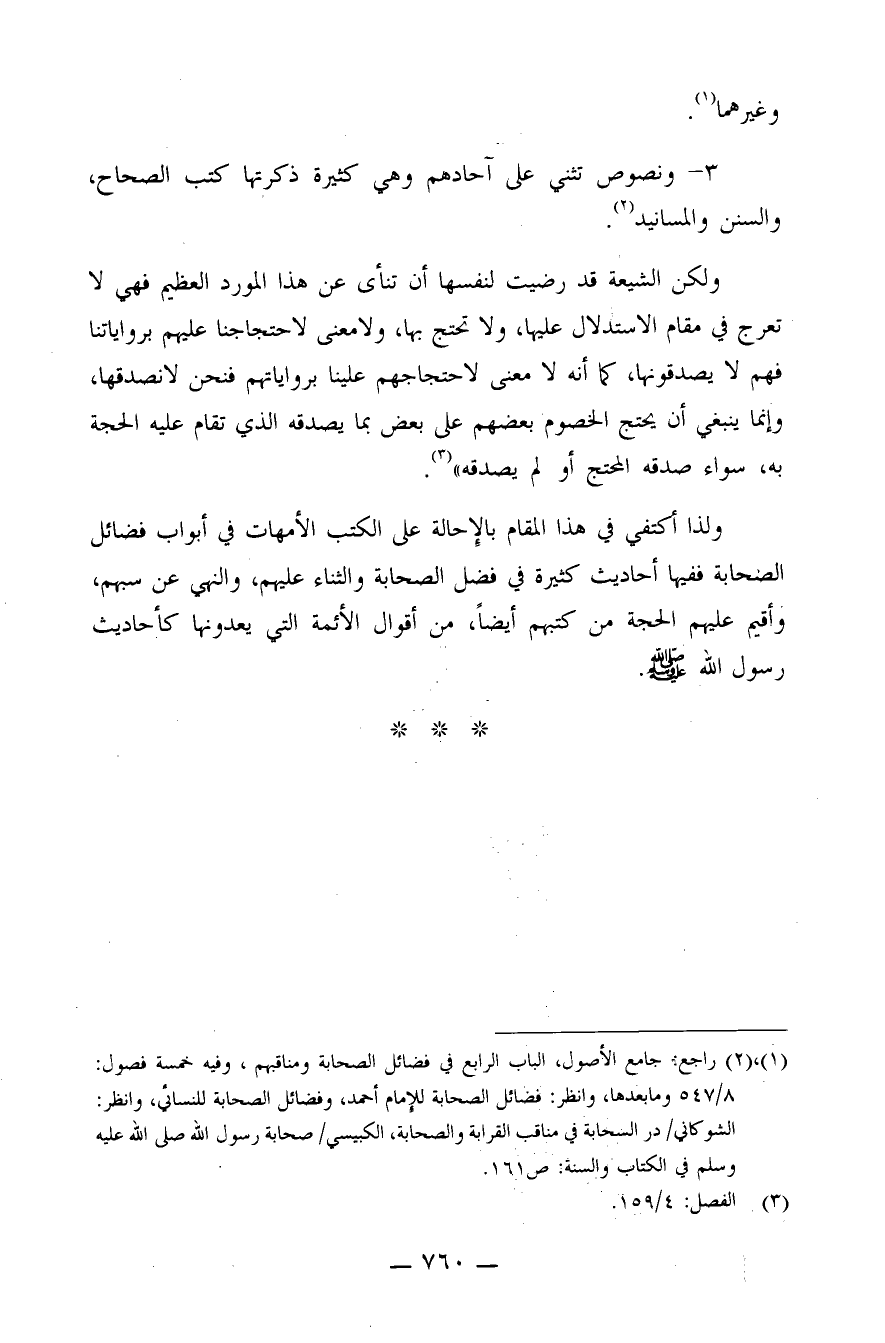 وغيرهما(١).
٣- ونصوص تثني على آحادهم وهي كثيرة ذكرتها كتب الصحاح،
والسنن والمسانيد(٢).
ولكن الشيعة قد رضيت لنفسها أن تنأى عن هذا المورد العظيم فهي لا
تعرج في مقام الاستدلال عليها، ولا تحتج بها، ولامعنى لاحتجاجنا عليهم برواياتنا
فهم لا يصدقونها، كما أنه لا معنى لاحتجاجهم علينا برواياتهم فنحن لانصدقها،
وإنما ينبغي أن يحتج الخصوم بعضهم على بعض بما يصدقه الذي تقام عليه الحجة
به، سواء صدقه المحتج أو لم يصدقه»(٣).
ولذا أكتفي في هذا المقام بالإحالة على الكتب الأمهات في أبواب فضائل
الصحابة ففيها أحاديث كثيرة في فضل الصحابة والثناء عليهم، والنهي عن سبهم،
وأقيم عليهم الحجة من كتبهم أيضاً، من أقوال الأئمة التي يعدونها كأحاديث
رسول الله ﷺ.
* * *
(١)،(٢) راجع: جامع الأصول، الباب الرابع في فضائل الصحابة ومناقبهم ، وفيه خمسة فصول:
٥٤٧/٨ ومابعدها، وانظر: فضائل الصحابة للإمام أحمد، وفضائل الصحابة للنسائي، وانظر:
الشوكاني/ در السحابة في مناقب القرابة والصحابة، الكبيسي/ صحابة رسول الله صلى الله عليه
وسلم في الكتاب والسنة: ص١٦١.
(٣) الفصل: ١٥٩/٤.
— ٧٦٠ —